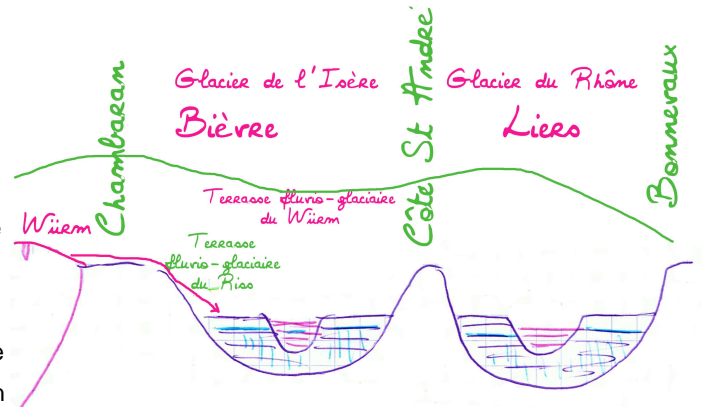 Chambaran
Glacier de l'Isère
Bièvre
Côte St André
Glacier du Rhône
Liers
Bonnevaux
Würm
Terrasse fluvio-glaciaire
du Würm
Terrasse
fluvio-glaciaire
du Riss